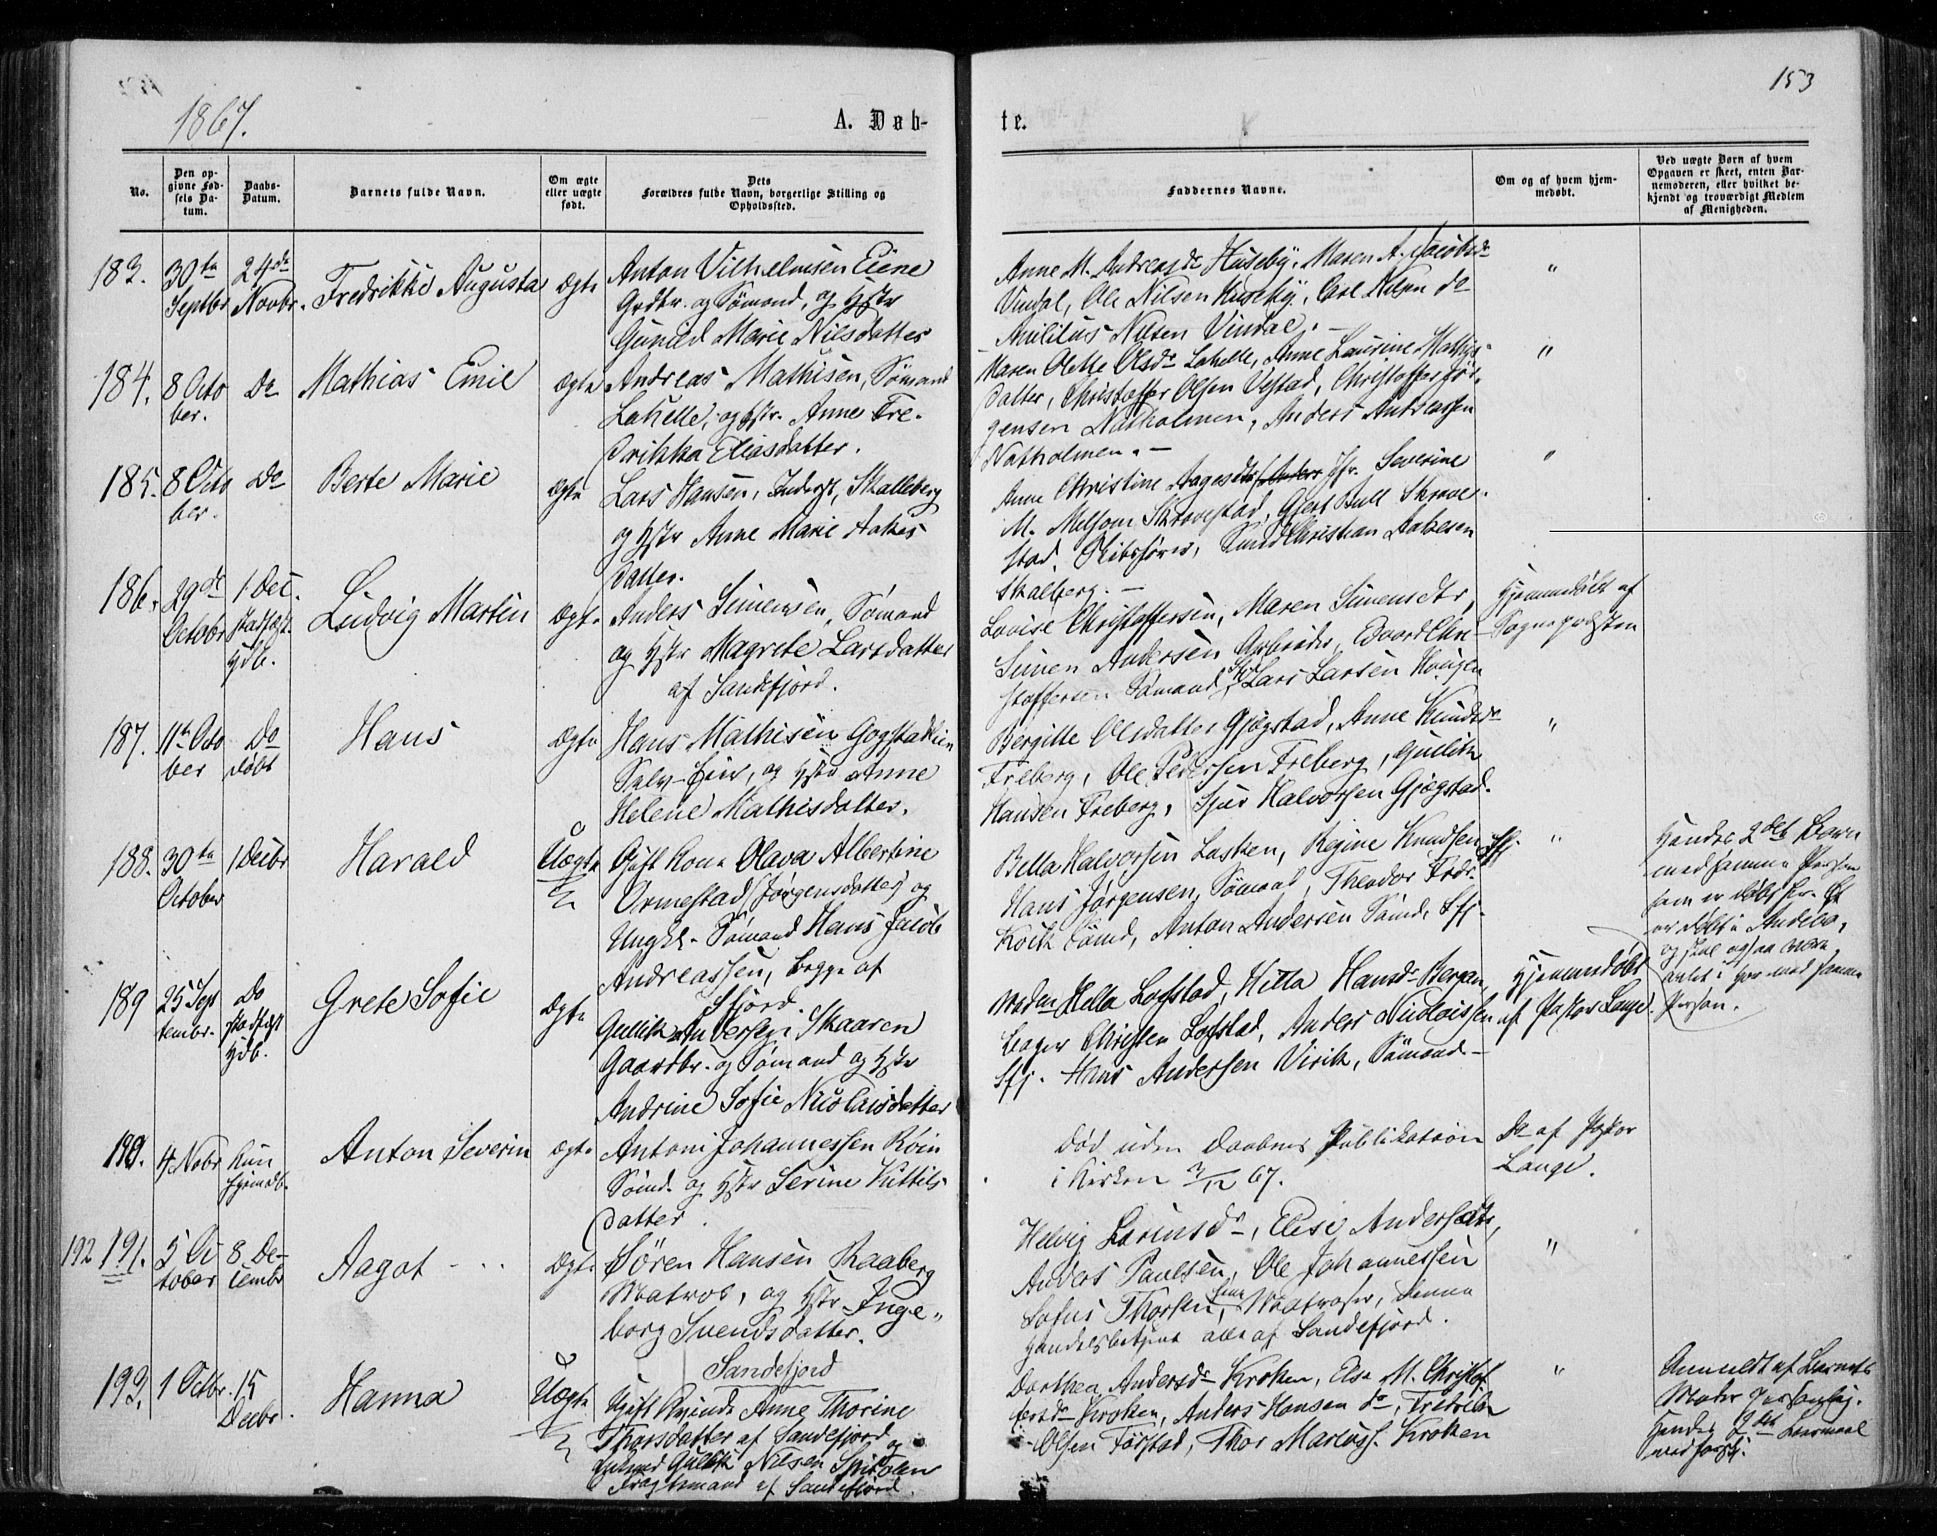 153
1867.
A. Døb-
te.
No.
Den op-
givne Fød-
sels Da-
tum.
Daabs-
Datum.
Barnets fulde Navn.
Om ægte
eller uægte
født.
Dets
Forældres fulde Navn, borgerlige Stilling og
Opholdssted.
Faddernes Navne.
Om og af hvem hjem-
medøbt.
Ved uægte Børn af hvem
Opgaven er skeet, enten Bar-
nemoderen, eller hvilket be-
kjendt og troværdigt Medlem
af Menigheden.
183.
30te
Septbr
24de
Novbr.
Fredrikke Augusta
Ægte
Anton Vilhelmsen Eiene
Grdbr. og Sømand, og Hstr
Gunild Marie Nilsdatter
Anne M. Andreasdr Huseby, Maren A. Jacobsdr
Vindal, Ole Nilsen Huseby, Carl Nilsen do
Nilsen Vindal. -
"
184.
8 Octo
ber.
Do
Mathias Emil
Ægte
Andreas Mathisen, Sømand
Lahelle, og Hstr. Anne Fre-
drikka Eliasdatter.
Maren Olette Olsdr Lahelle, Anne Laurine Mathis-
datter, Christoffer Olsen Vestad, Christoffer Jør-
gensen Natholmen, Anders Andreassen
Natholmen. -
"
185.
8 Octo
ber.
Do
Berte Marie
Ægte
Lars Hansen, Inderst, Skalleberg
og Hstr Anne Marie
datter.
Anne Christine Aagesdtr Jfr. Severine
M. Melsom Skravestad, Gjert Bull Skrave-
stad, Skibsfører, Christian
Skalberg. -
"
186.
29de
Octobr
1 Dec.
stadfæst.
Hjdb.
Ludvig Martin
Ægte
Anders Simensen, Sømand
og Hstr Magrete Larsdatter
af Sandefjord.
Lovise Christoffersen, Maren Simensdtr,
Simen Andersen Arbeider, Edvard Chri-
stoffersen Sømand, Lars Larsen Haugen
Hjemmedøbt af
Sognepræsten
187.
11te Octo
ber
Do
døbt
Hans
Ægte
Hans Mathisen Gogstad
Selveier, og Hstr Anne
Helene Mathisdatter.
Bergitte Olsdatter Gjøgstad, Anne
Freberg, Ole Pedersen Freberg, Gulik
Hansen Freberg, Sjur Halvorsen Gjøgstad.
"
188.
30te
October
1 Decbr
Harald
Uægte
2
Gift Kone Olava Albertine
Ormestad (Jørgensdatter) og
Ungkl. Sømand Hans Jacob
Andreassen, begge af
Sfjord.
Bella Halvorsen Lasken, Regine Knudsen Sfj.
Hans Jørgensen, Sømand, Theodor Fredr.
Sømd, Anton Andersen Sømd, Sfj.
"
Hendes 2det Barn
med samme Person
som er døbt her. Et
er døbt i Andebo,
og skal ogsaa være
avlet i med samme
Person.
189
25 Sept
tembr.
Do
stadfæst
Hjdb.
Grete Sofie
Ægte
Gullik Andersen Skaaren
Gaardbr. og Sømand og Hstr
Andrine Sofie Nicolaisdatter
Maden Hella Lofstad, Hilla Hansdr Bergan,
Bager Christen Lofstad, Anders Nicolaisen
Sfj. Hans Andersen Virik, Sømand -
Hjemmedøbt
af Pastor Lange.
190.
4 Nobr
Kun
hjemdb.
Anton Severin
Ægte
Antoni Johannessen Røin
Sømd. og Hstr Serine Kittils-
datter.
Død uden Daabens Publikation
i Kirken 3/12 67.
Do af Pastor
Lange.
192 191.
5 Oc
tober
8 De-
cembr
Aagot - - -
Ægte
Søren Hansen Raaberg
Matros, og Hstr Inge-
borg Svendsdatter.
Sandefjord
Helvig Larinsdr, Elise Andersdtr,
Anders Paulsen, Ole Johannessen
Sofus Thorsen, Matroser, denne
Handelsbetjent alle af Sandefjord.
"
193.
1 Octbr.
15
Decbr.
Hanna
Uægte
2
Ugift Kvinde Anne Thorine
Thorsdatter af Sandefjord og
Gullik Nilsen
Fragtemand af Sandefjord.
Dorthea Andersdr Kroken, Else M. Christof
fersdr Kroken, Anders Hansen do, Fredrik
Olsen Førstad, Thor Mariuss. Kroken
"
Anmeldt af Barnets
Moder personlig.
Hendes 2det Leiermaal